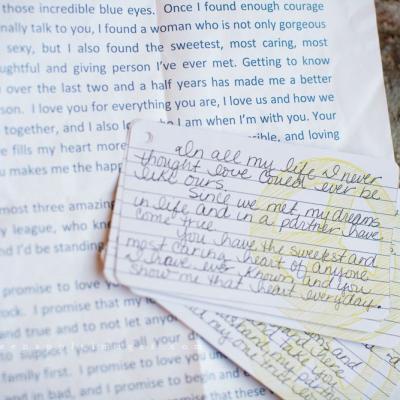 those incredible blue eyes. Once I found enough courage
nally talk to you, I found a woman who is not only gorgeous
sexy, but I also found the sweetest, most caring, most
ughtful and giving person I've ever met. Getting to know
over the last two and a half years has made me a better
son. I love you for everything you are, I love us and how we
together, and I also lo I am when I'm with you. Your
e fills my heart more sible, and loving
u makes me the happ
most three amazing
y league, who kne
nd I'd be standing
promise to love yo
ock. I promise that my
and true and to not let anyo
to support you and all your d
family first. I promise to love you
and in bad, and I promise to begin and e
promise that these
In all my life I never
thought love could ever be
like ours.
Since we met, my dreams
in life and in a partner have
come true.
You have the sweetest and
most caring heart of anyone
I have ever known and you
show me that heart everyday.
and
take you
my partner
my one true lo